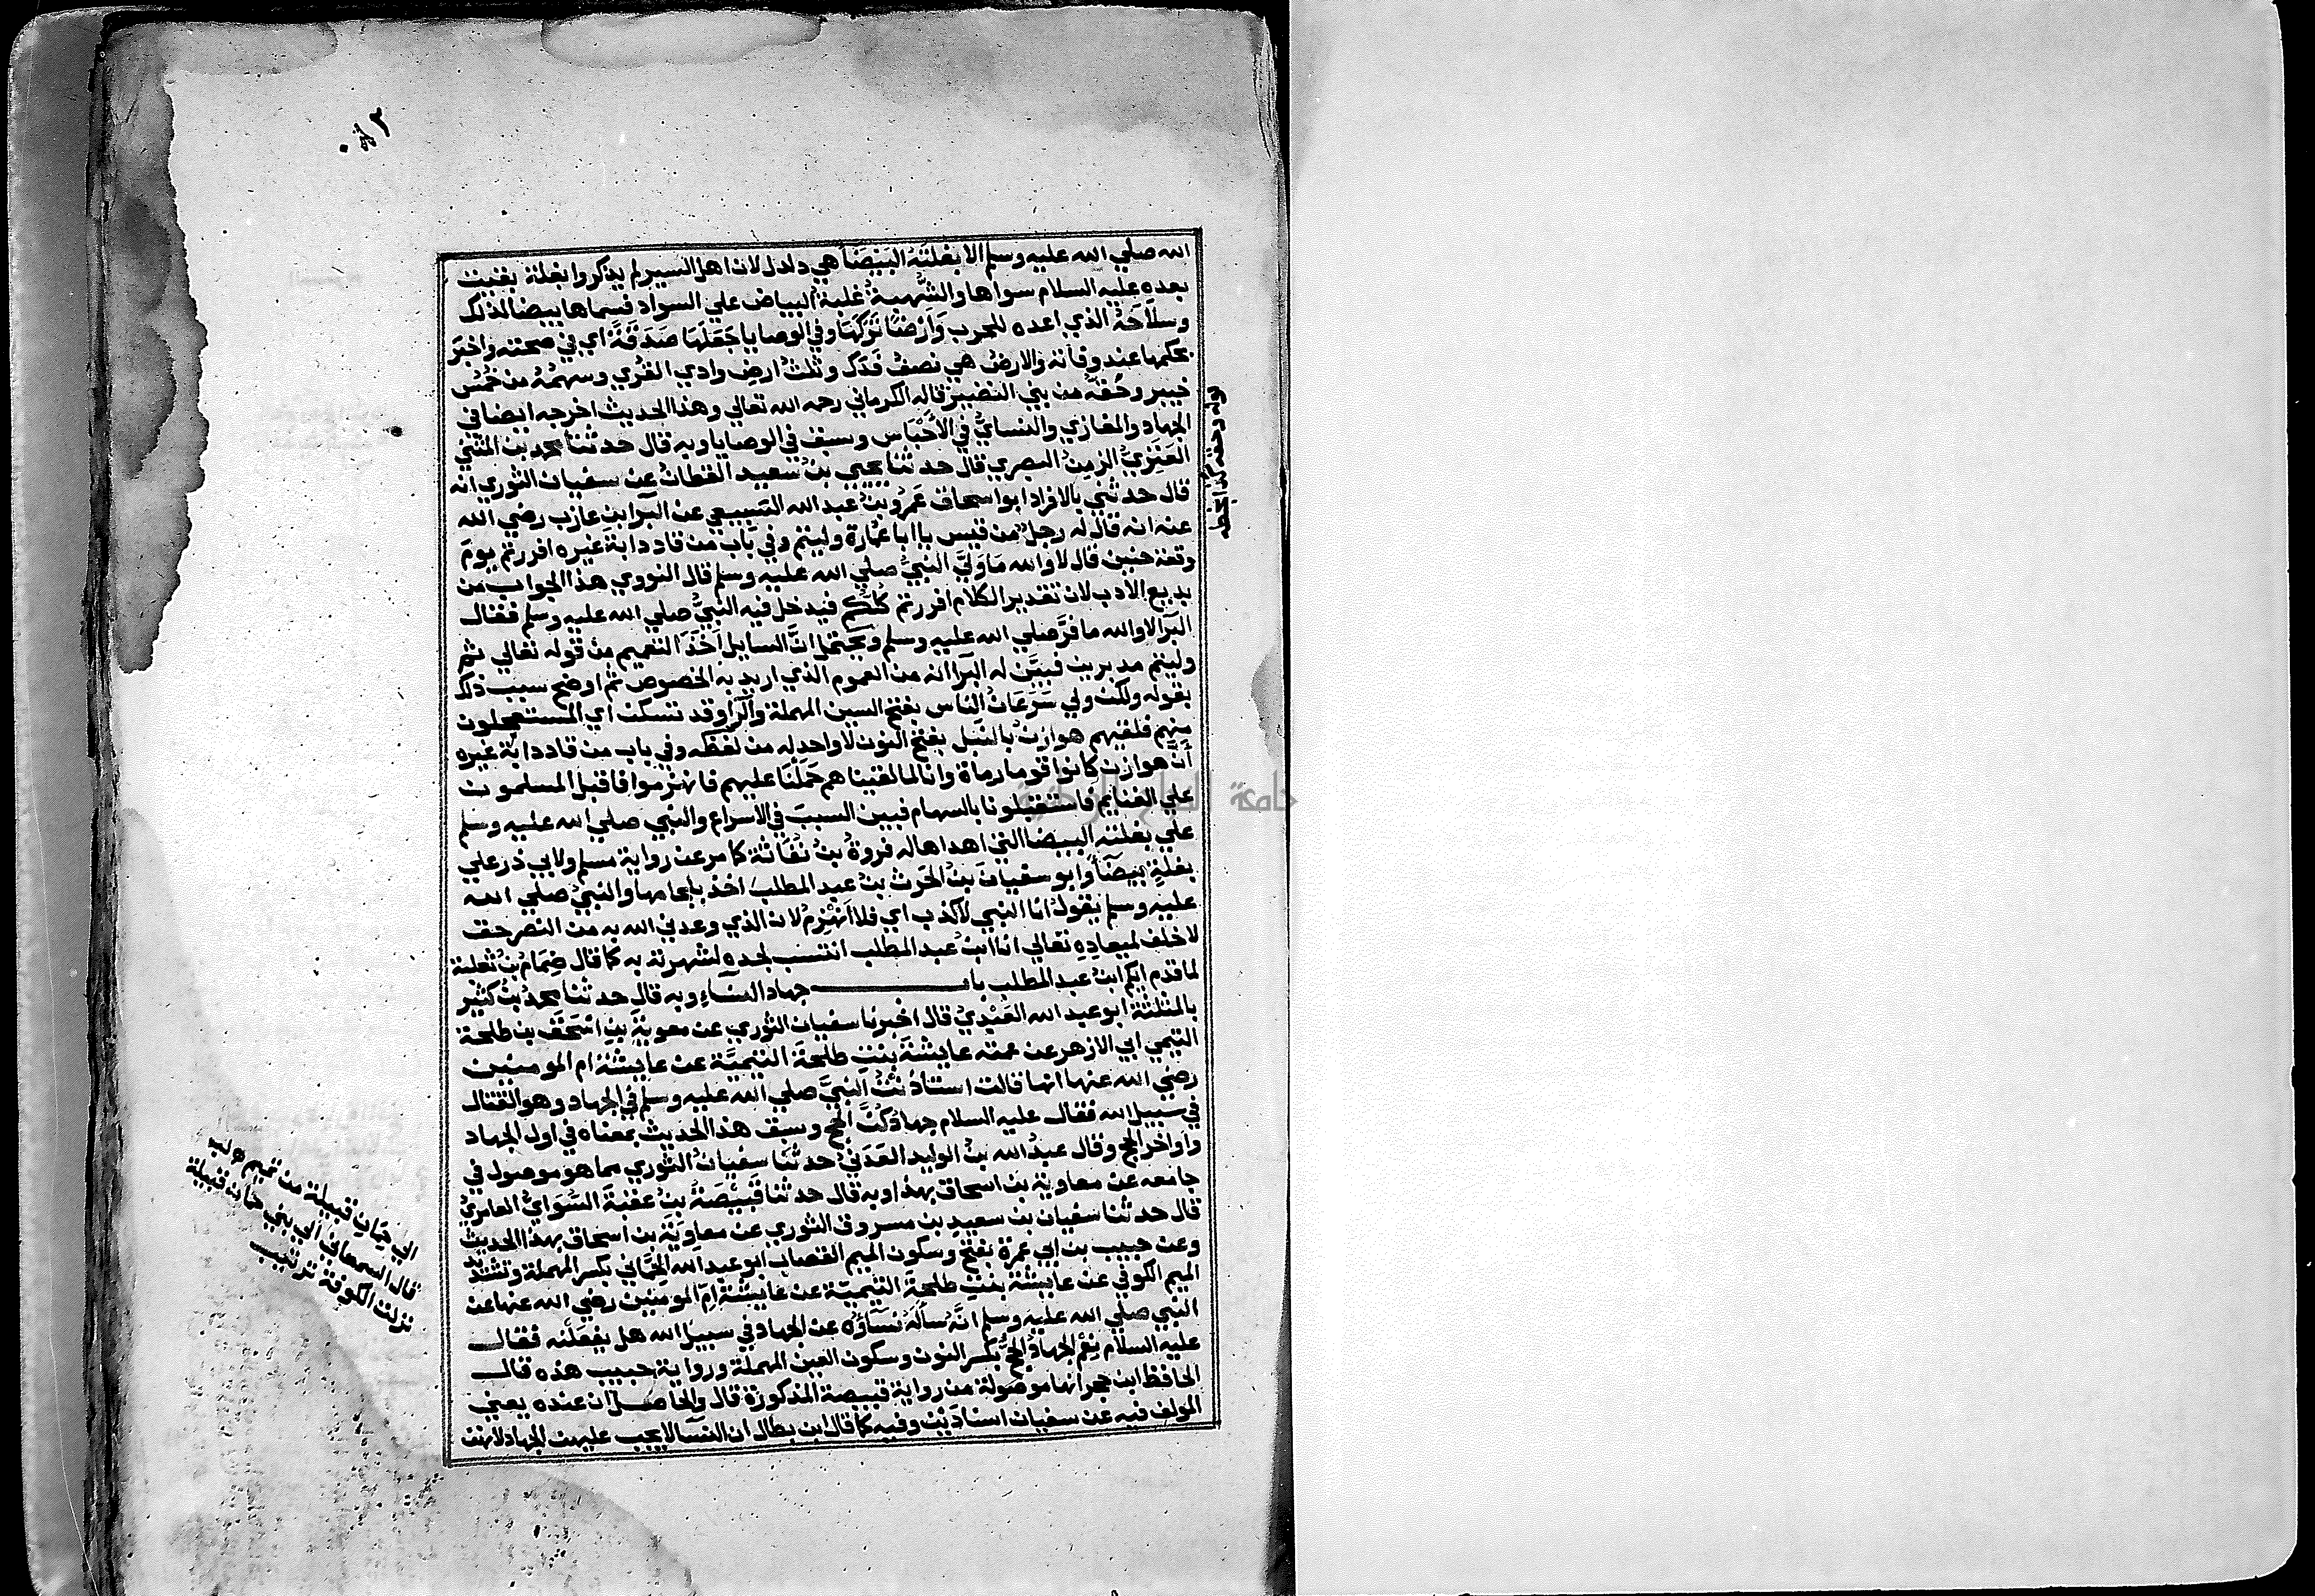 الله صلي الله عليه وسلم الا بغلته البيضا هي دلدل لان اهل السير لم يذكروا بغلة بقيت
بعده عليه السلام سواها والشهبة غلبة البياض علي السواد فسماها بيضا لذلك
وسلاحه الذي اعده للحرب وارضا تركها وفي الوصايا جعلها صدقة اي في صحته واخبر
بحكمها عند وفاته والارض هي نصف فدك وثلث ارض وادي القري وسهمه من خمس
خيبر وحقه من بني النضير قاله الكرماني رحمه الله تعالي وهذا الحديث اخرجه ايضا في
الجهاد والمغازي والنساي في الاحباس وسبق في الوصايا وبه قال حدثنا محمد بن المثني
العنزي الزمن البصري قال حدثنا يحيي بن سعيد القطان عن سفيان الثوري انه
قال حدثني بالافراد ابو اسحاق عمرو بن عبد الله السبيعي عن البرا بن عازب رضي الله
عنه انه قال له رجل من قيس يا ابا عمارة وليتم وفي باب من قاد دابة غيره افررتم يوم
وقعة حنين قال لا والله ما ولي النبي صلي الله عليه وسلم قال النووي هذا الجواب من
بديع الادب لان تقدير الكلام افررتم كلكم فيدخل فيه النبي صلي الله عليه وسلم فقال
البرا لا والله ما فر صلي الله عليه وسلم ويحتمل ان السايل اخذ التعميم من قوله تعالي ثم
وليتم مدبرين فبين له البرا انه من العموم الذي اريد به الخصوص ثم اوضح سبب ذلك
بقوله ولكن ولي سرعان الناس بفتح السين المهملة والرا وقد تسكن اي المستعجلون
منهم فلقيهم هوازن بالنبل بفتح النون لا واحد له من لفظه وفي باب من قاد دابة غيره
ان هوازن كانوا قوما رماة وانا لما لقيناهم حملنا عليهم فانهزموا فاقبل المسلمون
علي الغنايم فاستقبلونا بالسهام فبين السبب في الاسراع والنبي صلي الله عليه وسلم
علي بغلته البيضا التي اهداها له فروة بن نفاثة كما مر عن رواية مسلم ولابي ذر علي
بغلة بيضا وابو سفيان بن الحرث بن عبد المطلب اخذ بلجامها والنبي صلي الله
عليه وسلم يقول انا النبي لا كذب اي فلا انهزم لان الذي وعدني الله به من النصر حق
لا خلف لميعاده تعالي انا ابن عبد المطلب انتسب لجده لشهرته به كما قال ضمام بن ثعلبة
لما قدم ايكم ابن عبد المطلب باب جهاد النساء وبه قال حدثنا محمد بن كثير
بالمثلثة ابو عبد الله العبدي قال اخبرنا سفيان الثوري عن معوية بن اسحق بن طلحة
التيمي ابي الازهر عن عمته عايشة بنت طلحة التيمية عن عايشة ام المومنين
رضي الله عنها انها قالت استاذنت النبي صلي الله عليه وسلم في الجهاد وهو القتال
في سبيل الله فقال عليه السلام جهادكن الحج وسبق هذا الحديث بمعناه في اول الجهاد
واواخر الحج وقال عبد الله بن الوليد العدني حدثنا سفيان الثوري مما هو موصول في
جامعه عن معاوية بن اسحاق بهذا وبه قال حدثنا قبيصة بن عقبة السواي العامري
قال حدثنا سفيان بن سعيد بن مسروق الثوري عن معاوية بن اسحاق بهذا الحديث
وعن حبيب بن ابي عمرة بفتح وسكون الميم القصاب ابو عبد الله الحماني بكسر المهملة وتشديد
الميم الكوفي عن عايشة بنت طلحة التيمية عن عايشة ام المومنين رضي الله عنها عن
النبي صلي الله عليه وسلم انه ساله نساؤه عن الجهاد في سبيل الله هل يفعلنه فقال
عليه السلام نعم الجهاد الحج بكسر النون وسكون العين المهملة ورواية حبيب هذه قال
الحافظ ابن حجر انها موصولة من رواية قبيصة المذكورة قال والحاصل ان عنده يعني
المولف فيه عن سفيان اسنادين وفيه كما قال ابن بطال ان النسا لا يجب عليهن الجهاد لانهن
قوله وحقه كذا بخطه
الي حمان قبيلة من تميم
قال السمعاني الي بني حمان قبيلة
نزلت الكوفة ترتيب